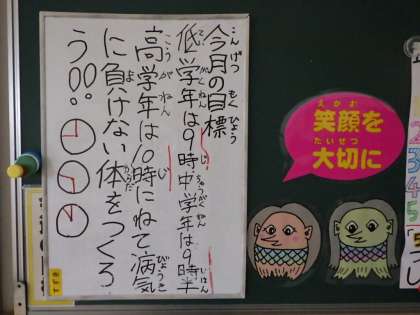 今月の目標
低学年は9時中学年は9時半
高学年は10時にねて病気
に負けない体をつくろ
う!!
笑顔を
大切に